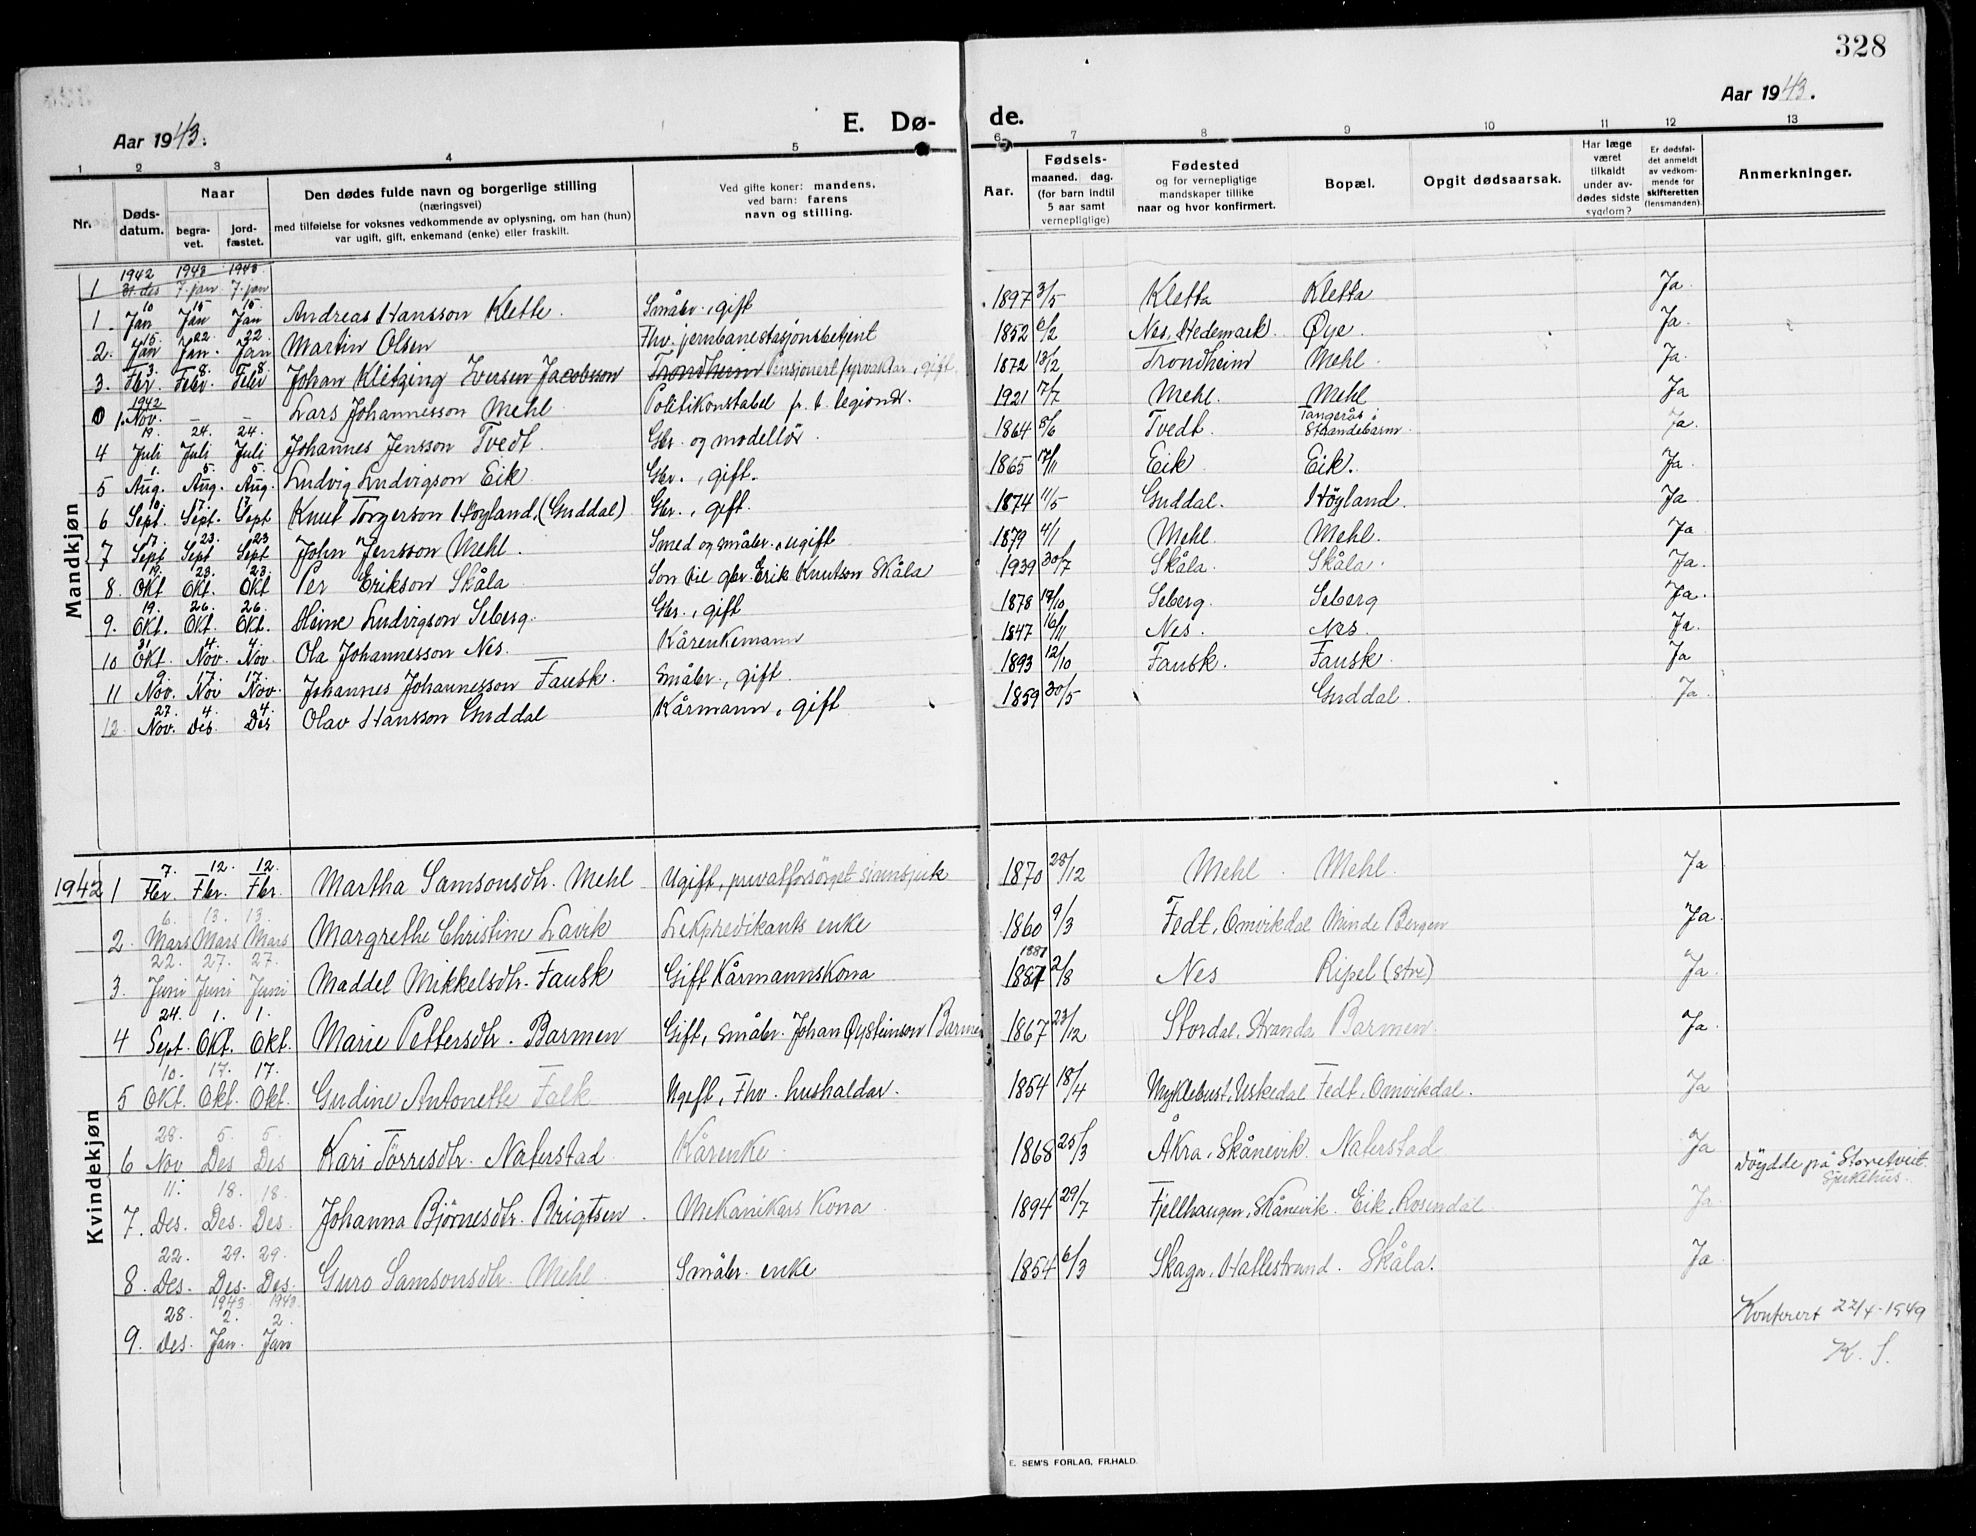 328
Aar 1943.
E. Dø-
de.
Aar 1943.
1 2 3 4 5 6 7 8 9 10 11 12 13
Nr. Døds-datum. Naar begra-vet. jord-fæstet. Den dødes fulde navn og borgerlige stilling (næringsvei) med tilføielse for voksnes vedkommende av oplysning, om han (hun) var ugift, gift, enkemand (enke) eller fraskilt. Ved gifte koner: mandens, ved barn: farens navn og stilling. Aar. Fødsels-maaned. dag. (for barn indtil 5 aar samt vernepligtige) Fødested og for vernepligtige mandskaper tillike naar og hvor konfirmert. Bopæl. Opgit dødsaarsak. Har læge været tilkaldt under av-dødes sidste sygdom? Er dødsfal-det anmeldt av vedkom-mende for skifteretten (lensmanden). Anmerkninger.
Mandkjøn
1 1942 31. des 1943 7. jan 1943 7. jan
1. 10 Jan 15 Jan 15 Jan Andreas Hansson Klette. Småbr., gift 1897 3/5 Kletta Kletta Ja
2. 15. Jan 22 Jan. 22 Jan Martin Olsen Fhv. jernbanestasjonsbetjent 1852 6/2 Nes, Hedemark. Øye. Ja.
3. 3. Febr. 8. Febr. 8. Febr Johan Klitzing Iversen Jacobsson Trondheim Pensjonert fyrvaktar, gift 1872 13/2 Trondheim Mehl. Ja.
1. 1942 Nov. — — Lars Johannesson Mehl Politikonstabel fr. t. legionær. 1921 7/7 Mehl. Mehl Ja
4 19. Juli 24. Juli 24. Juli Johannes Jensson Tvedt. Gbr. og modellør. 1864 5/6 Tvedt. Tangerås i Strandebarm. Ja.
5 1. Aug. 5. Aug. 5. Aug. Ludvig Ludvigson Eik. Gbr., gift. 1865 17/11 Eik. Eik. Ja
6 10. Sept. 17. Sept. 17 Sept Knut Torgerson Høyland, (Guddal) Gbr., gift. 1874 11/5 Guddal. Höyland. Ja
7 17. Sept 23. Sept 23 Sept John Jensson Mehl. Smed og småbr., ugift 1879 4/1 Mehl Mehl. Ja
8. 19. Okt 23. Okt. 23. Okt Per Erikson Skåla Son til gbr. Erik Knutson Skåla 1939 30/7 Skåla. Skåla. Ja.
9. 19. Okt. 26 Okt. 26. Okt. Heine Ludvigson Seberg. Gbr., gift 1878 19/10 Seberg. Seberg Ja.
10 31 Okt. 4. Nov. 4. Nov. Ola Johannesson Nes. Kårenkemann 1847 16/11 Nes. Nes. Ja.
11 9. Nov. 17. Nov 17. Nov. Johannes Johannesson Fausk. Småbr., gift. 1893 12/10 Fausk. Fausk. Ja
12. 27. Nov. 4. Des 4. Des Olav Hansson Guddal Kårmann, gift 1859 30/5 Guddal. Ja.
Kvindekjøn
1942 1 7. Fbr. 12. Fbr. 12. Fbr. Martha Samsonsdtr. Mehl Ugift, privatforsörget sinnsjuk 1870 28/12 Mehl. Mehl. Ja
2. 6. Mars 13. Mars 13. Mars Margrethe Christine Lavik Lekpredikants enke 1860 9/3 Fedt, Omvikdal Minde Bergen Ja.
3. 22. Juni 27. Juni 27. Juni Maddel Mikkelsdtr. Fausk Gift Kårmannskona 1887 1887 2/8 Nes Ripel (Øtre) Ja.
4 24. Sept. 1. Okt. 1. Okt. Marie Pettersdtr. Barmen Gift, Småbr. Johan Øysteinson Barmen 1867 23/12 Stordal, Stranda Barmen. Ja.
5 10. Okt. 17. Okt. 17. Okt. Gudine Antonette Falk Ugift, Fhv. hushaldar. 1854 18/4 Myklebust, Uskedal Fedt, Omvikdal. Ja
6 28. Nov 5. Des 5. Des Kari Törresdtr. Naterstad. Kårenke 1868 25/3 Åkra, Skånevik. Naterstad Ja
Döydde på Storetveit Sjukehus.
7. 11. Des. 18. Des. 18. Des. Johanna Bjørnesdtr. Brigtsen. Mekanikars Kona 1894 29/7 Fjellhaugen, Skånevik. Eik, Rosendal Ja
8. 22. Des. 29. Des. 29. Des. Guro Samsonsdtr. Mehl Småbr. enke 1854 6/3 Skaga, Hattestrand. Skåla. Ja.
9. 28. Des. 1943 2. Jan. 1943 2. Jan
Konferert 22/4-1949
K. S.
E. SEM'S FORLAG, FR.HALD.